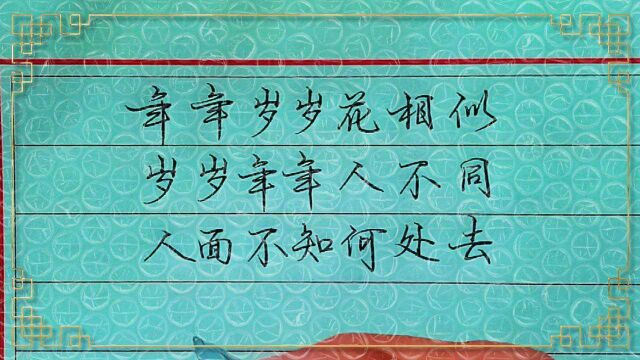 年年岁岁花相似
岁岁年年人不同
人面不知何处去